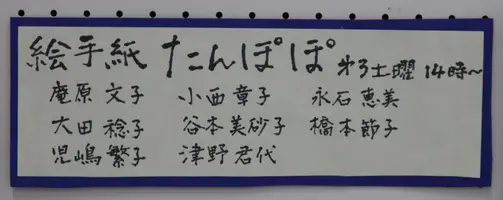 絵手紙 たんぽぽ 第3土曜 14時~
庵原 文子 小西 章子 永石 恵美
太田 稔子 谷本 美砂子 橋本 節子
児嶋 繁子 津野 君代